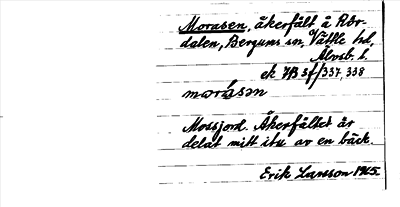 Morasen, åkerfält å Rör-
dalen, Bergums sn, Vättle hd,
Älvsb. l.
ek 7B 5f/337, 338
Mossjord. Åkerfältet är
delat mitt itu av en bäck.
Erik Larsson 1965.